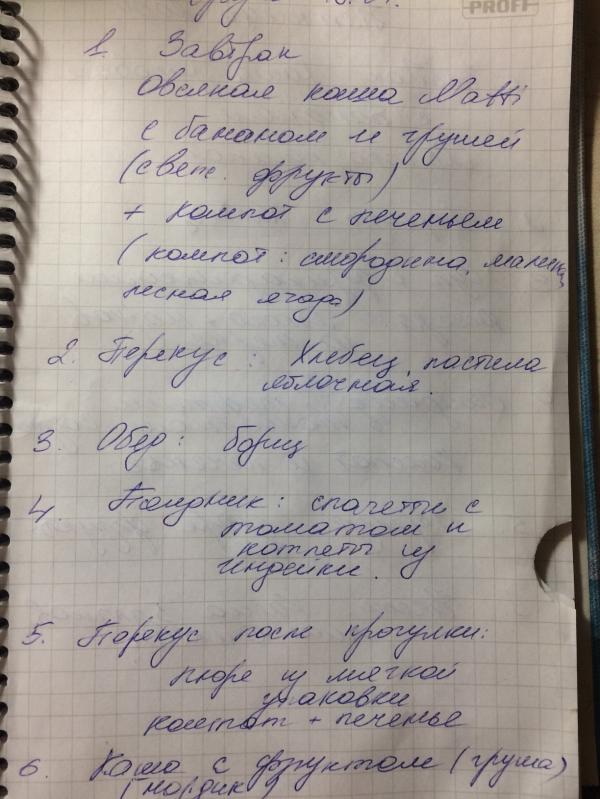 PROFF
1. Завтрак
Овсяная каша Matti
с бананом и грушей
(свеж. фрукты)
+ компот с печеньем
(компот: смородина, малина,
лесная ягода)
2. Перекус: Хлебец, пастила
яблочная.
3. Обед: борщ
4. Полдник: спагетти с
томатом и
котлеты из
индейки.
5. Перекус после прогулки:
пюре из мягкой
упаковки
компот + печенье
6. Каша с фруктом (груша)
(нордик)